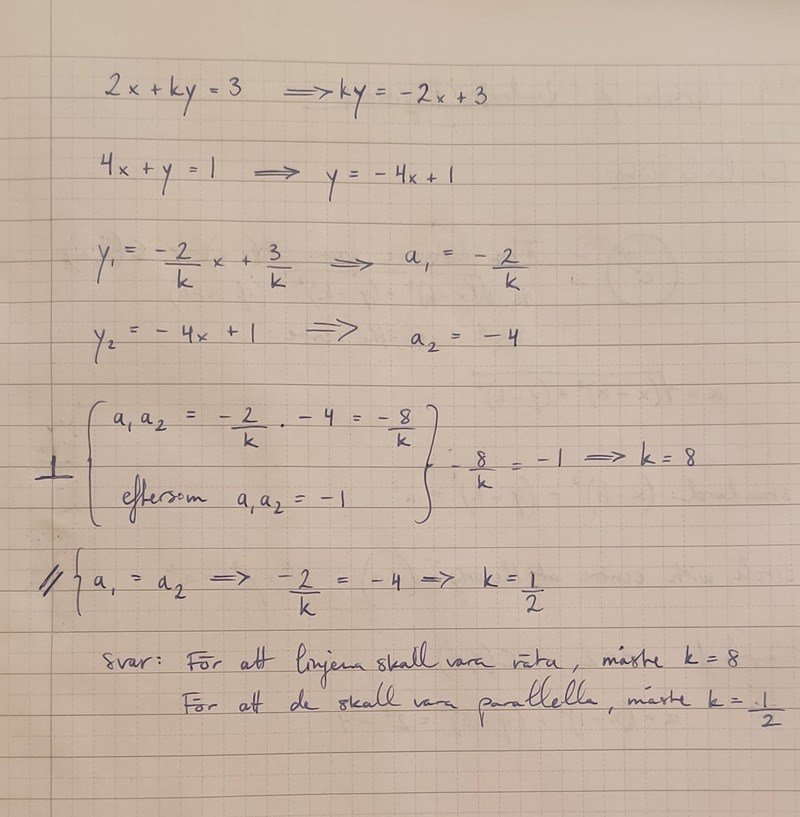 2x + ky = 3 ⟹ ky = -2x + 3
4x + y = 1 ⟹ y = -4x + 1
y₁ = -2/k x + 3/k ⟹ a₁ = -2/k
y₂ = -4x + 1 ⟹ a₂ = -4
⊥ { a₁a₂ = -2/k · -4 = -8/k
eftersom a₁a₂ = -1 } -8/k = -1 ⟹ k = 8
// { a₁ = a₂ ⟹ -2/k = -4 ⟹ k = 1/2
svar: För att linjena skall vara räta, måste k = 8
För att de skall vara parallella, måste k = 1/2